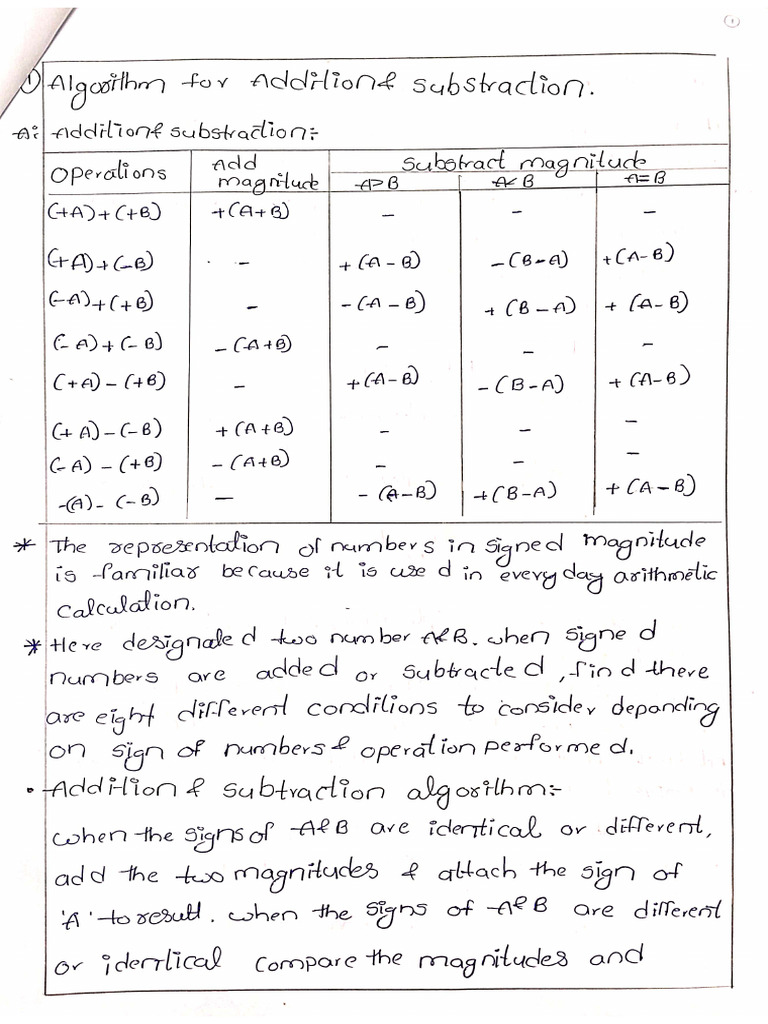 1
① Algorithm for Addition & substraction.
A: Addition & substraction:-
Operations | Add magnitude | Substract magnitude
A>B | A<B | A=B
(+A)+(+B) | +(A+B) | - | - | -
(+A)+(-B) | - | +(A-B) | -(B-A) | +(A-B)
(-A)+(+B) | - | -(A-B) | +(B-A) | +(A-B)
(-A)+(-B) | -(A+B) | - | - | -
(+A)-(+B) | - | +(A-B) | -(B-A) | +(A-B)
(+A)-(-B) | +(A+B) | - | - | -
(-A)-(+B) | -(A+B) | - | - | -
-(A)-(-B) | - | -(A-B) | +(B-A) | +(A-B)
* The representation of numbers in signed magnitude
is familiar because it is used in everyday arithmetic
calculation.
* Here designated two number A&B. when signed
numbers are added or subtracted, find there
are eight different conditions to consider depanding
on sign of numbers & operation performed.
• Addition & subtraction algorithm:-
when the signs of A&B are identical or different,
add the two magnitudes & attach the sign of
'A' to result. when the signs of A&B are different
or identical compare the magnitudes and